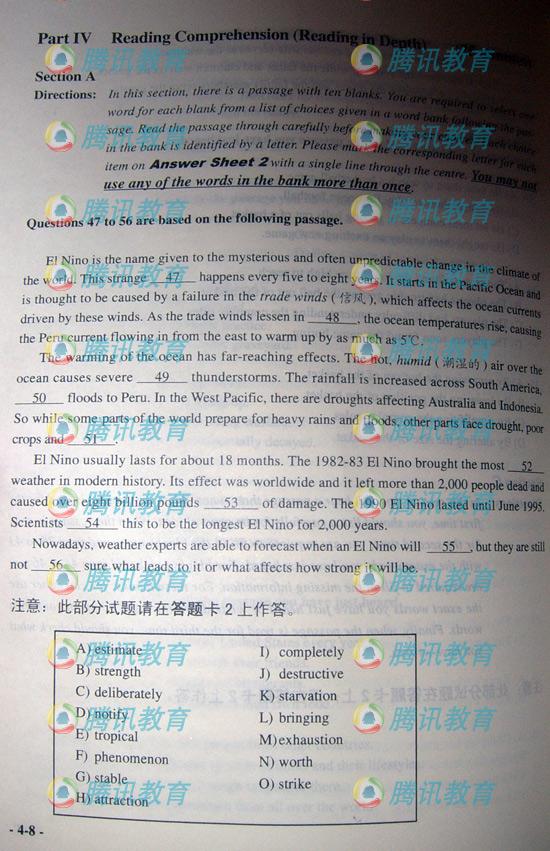 Part IV Reading Comprehension (Reading in Depth)
Section A
Directions: In this section, there is a passage with ten blanks. You are required to select one
word for each blank from a list of choices given in a word bank following the pas-
sage. Read the passage through carefully before making your choices. Each choice
in the bank is identified by a letter. Please mark the corresponding letter for each
item on Answer Sheet 2 with a single line through the centre. You may not
use any of the words in the bank more than once.
Questions 47 to 56 are based on the following passage.
El Nino is the name given to the mysterious and often unpredictable change in the climate of
the world. This strange 47 happens every five to eight years. It starts in the Pacific Ocean and
is thought to be caused by a failure in the trade winds (信风), which affects the ocean currents
driven by these winds. As the trade winds lessen in 48 , the ocean temperatures rise, causing
the Peru current flowing in from the east to warm up by as much as 5℃.
The warming of the ocean has far-reaching effects. The hot, humid (潮湿的) air over the
ocean causes severe 49 thunderstorms. The rainfall is increased across South America,
50 floods to Peru. In the West Pacific, there are droughts affecting Australia and Indonesia.
So while some parts of the world prepare for heavy rains and floods, other parts face drought, poor
crops and 51 .
El Nino usually lasts for about 18 months. The 1982-83 El Nino brought the most 52
weather in modern history. Its effect was worldwide and it left more than 2,000 people dead and
caused over eight billion pounds 53 of damage. The 1990 El Nino lasted until June 1995.
Scientists 54 this to be the longest El Nino for 2,000 years.
Nowadays, weather experts are able to forecast when an El Nino will 55 , but they are still
not 56 sure what leads to it or what affects how strong it will be.
注意：此部分试题请在答题卡 2 上作答。
A) estimate
B) strength
C) deliberately
D) notify
E) tropical
F) phenomenon
G) stable
H) attraction
I) completely
J) destructive
K) starvation
L) bringing
M) exhaustion
N) worth
O) strike
- 4-8 -
腾讯教育